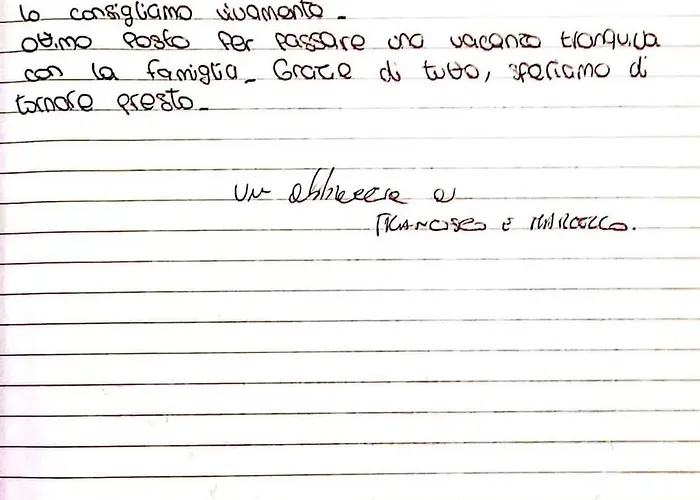 lo consigliamo vivamente.
ottimo posto per passare una vacanza tranquilla
con la famiglia. Grazie di tutto, speriamo di
tornare presto.
un abbraccio a
FRANCESCO E MARCELLO.